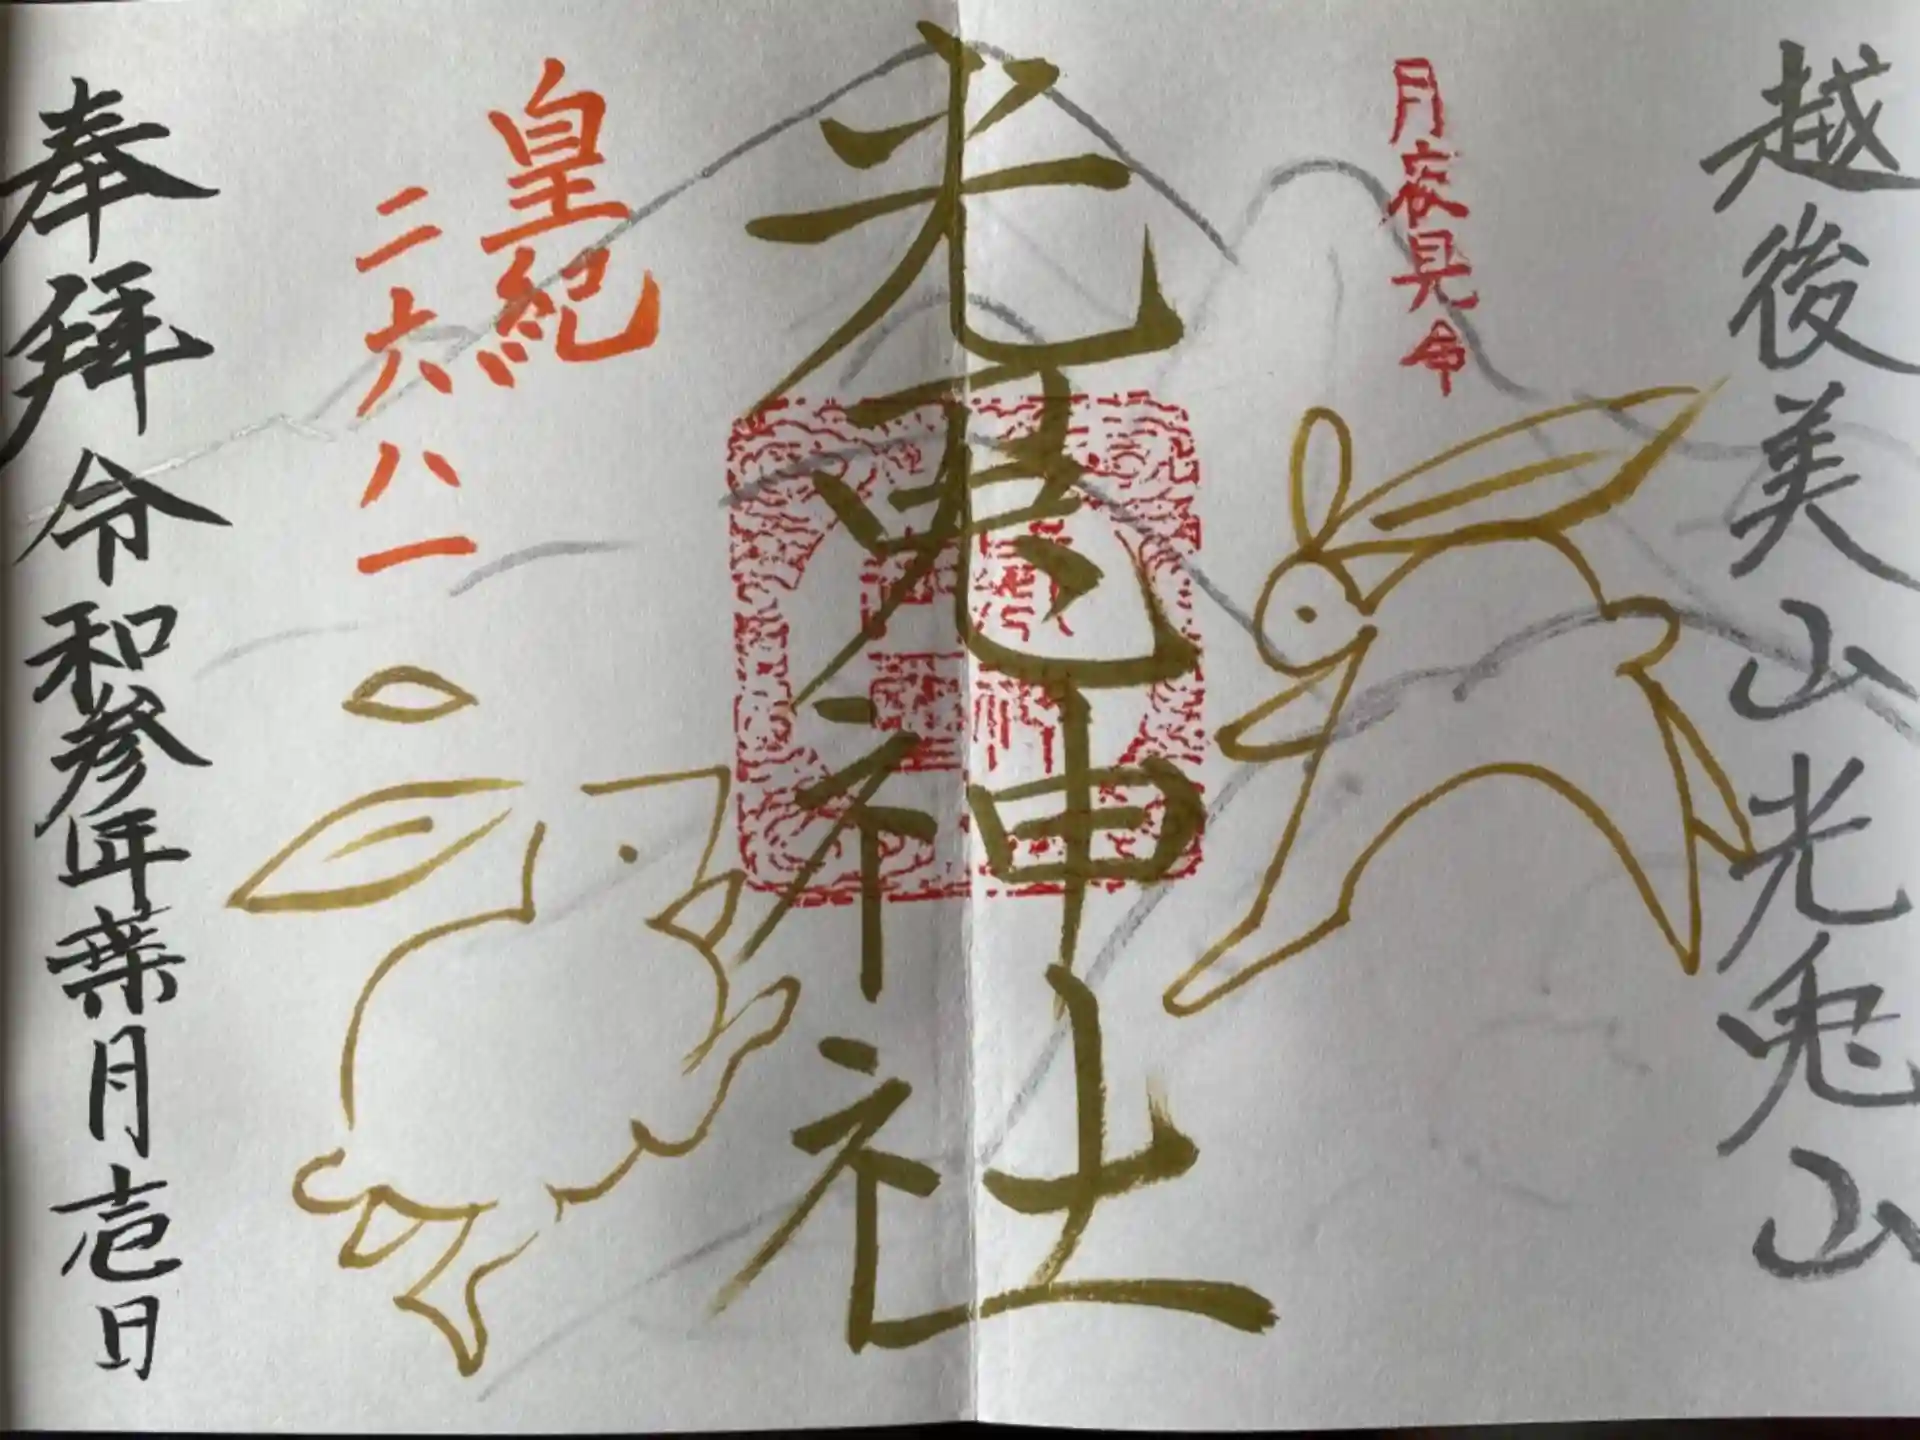 越後美山光兎山
月夜見命
光兎神社
皇紀
二六八一
奉拜令和参年葉月壱日